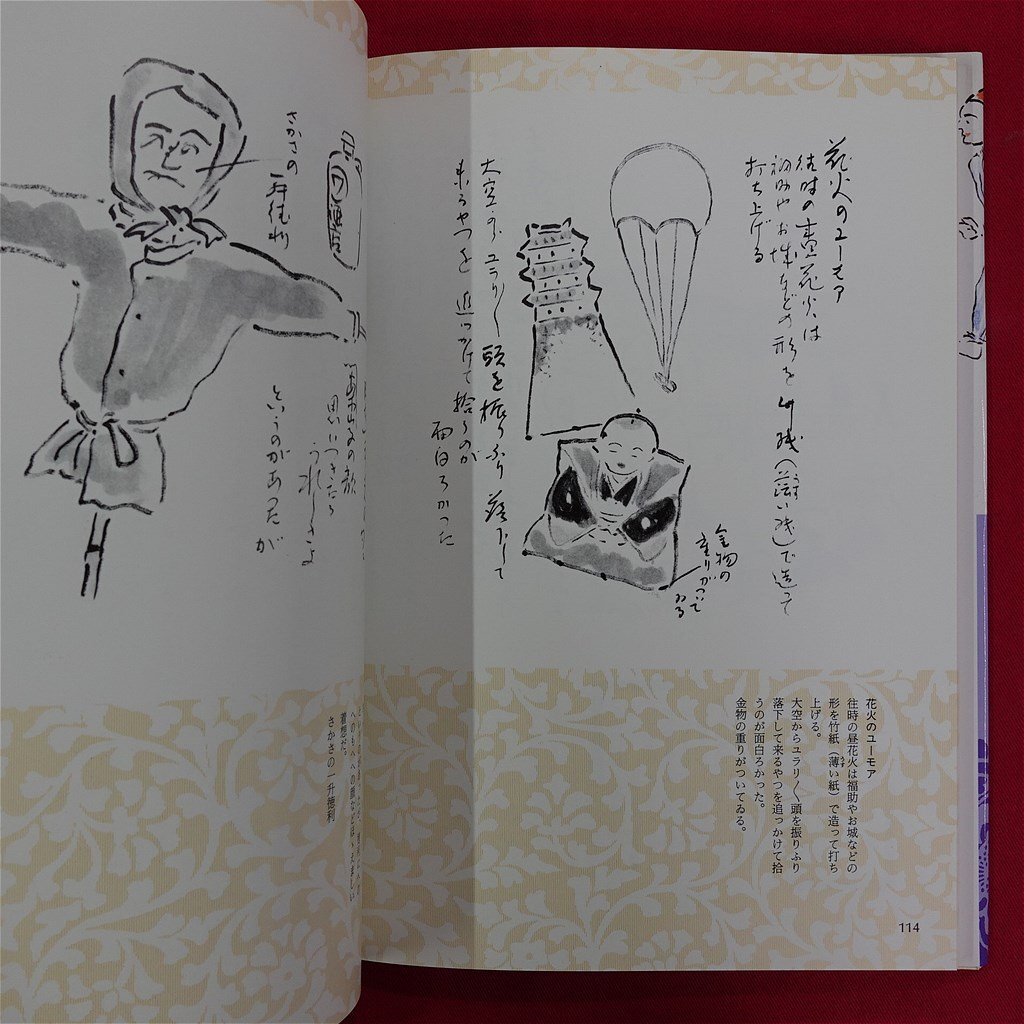 花火のユーモア
往時の昼花火は
福助やお城などの形を竹紙（薄い紙）で造って
打ち上げる
大空からユラリ〳〵頭を振りふり落下して
来るやつを追っかけて拾うのが
面白ろかった
金物の
重りがついて
ゐる
花火のユーモア
往時の昼花火は福助やお城などの
形を竹紙（薄い紙）で造って打ち
うす
上げる。
大空からユラリ〳〵頭を振りふり
落下して来るやつを追っかけて拾
うのが面白ろかった。
金物の重りがついてゐる。
114
さかさの
一升徳利
思いつきたる
うれしさよ
というのがあったが
へのもへの
着想だ。
さかさの一升徳利